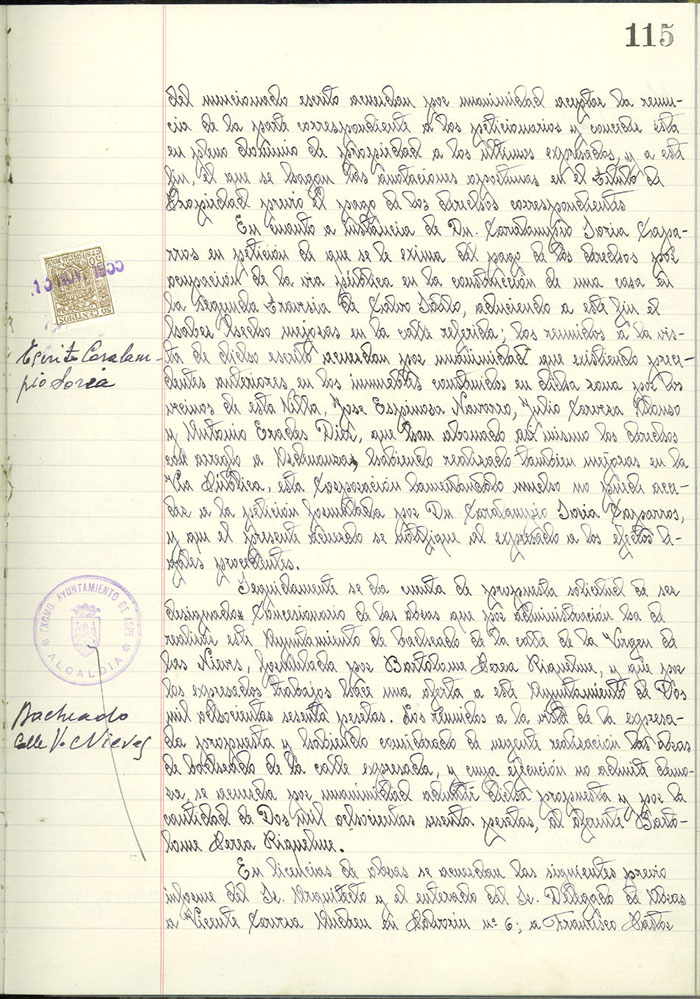 115
del mencionado escrito acuerdan por unanimidad aceptar la renun-
cia de la parte correspondiente a los peticionarios y conceder esta
en pleno dominio de propiedad a los últimos expresados, y a este
fin, el que se hagan las anotaciones oportunas en el Título de
Propiedad previo el pago de los derechos correspondientes
En cuanto a instancia de Dn. Caralampio Soria Capa-
rros en petición de que se le exima del pago de los derechos por
ocupación de la via pública en la construcción de una casa en
la Segunda Travesia de Calvo Sotelo, aduciendo a este fin el
haber hecho mejoras en la calle referida; los reunidos a la vis-
ta de dicho escrito acuerdan por unanimidad que existiendo prece-
dentes anteriores, en los inmuebles construidos en dicha zona por los
vecinos de esta Villa, Jose Espinosa Navarro, Julio Alonso
y Antonio Erades Diez, que han abonado asi mismo los derechos
con arreglo a Ordenanza, habiendo realizado tambien mejoras en la
Via Pública, esta Corporación lamentandolo mucho no puede acce-
der a la petición formulada por Dn. Caralampio Soria Caparros,
y que el presente acuerdo se notifique al expresado a los efectos le-
gales procedentes.
Seguidamente se da cuenta de propuesta solicitud de ser
designado Concesionario de las obras que por administración ha de
realizar este Ayuntamiento de bacheado de la calle de la Virgen de
las Nieves, formulada por Bartolome Perea Riquelme, y que por
los expresados trabajos hace una oferta a este Ayuntamiento de Dos
mil ochocientas sesenta pesetas. Los reunidos a la vista de la expresa-
da propuesta y habiendo considerado de urgente realización las obras
de bacheado de la calle expresada, y cuya ejecución no admite demo-
ra, se acuerda por unanimidad admitir dicha propuesta y por la
cantidad de Dos mil ochocientas sesenta pesetas, al oferente Barto-
lome Perea Riquelme.
En licencias de obras se acuerdan las siguientes previo
informe del Sr. Arquitecto y el enterado del Sr. Delegado de Obras
a Vicente Andreu en nº 6; a Francisco Pastor
Escrito Caralam-
pio Soria
EXCMO. AYUNTAMIENTO DE ASPE
ALCALDIA
Bacheado
Calle V. Nieves